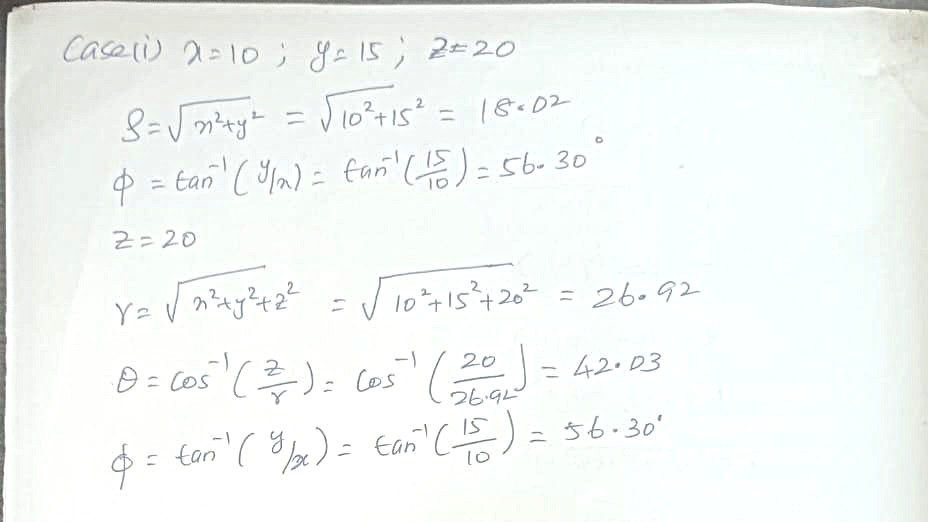 Case(i) x=10 ; y=15 ; z=20
ρ=√x²+y² = √10²+15² = 18.02
ϕ = tan⁻¹(y/x) = tan⁻¹(15/10) = 56.30°
z=20
r=√x²+y²+z² = √10²+15²+20² = 26.92
θ=cos⁻¹(z/r) = cos⁻¹(20/26.92) = 42.03
ϕ = tan⁻¹(y/x) = tan⁻¹(15/10) = 56.30°